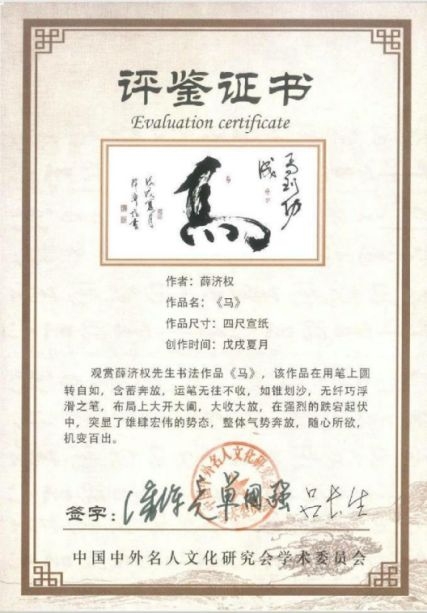 评鉴证书
Evaluation certificate
马到功
成
馬
戊戌夏月
作者：薛济权
作品名：《马》
作品尺寸：四尺宣纸
创作时间：戊戌夏月
观赏薛济权先生书法作品《马》，该作品在用笔上圆
转自如，含蓄奔放，运笔无往不收，如锥划沙，无纤巧浮
滑之笔，布局上大开大阖，大收大放，在强烈的跌宕起伏
中，突显了雄肆宏伟的势态，整体气势奔放，随心所欲，
机变百出。
签字：
单国强
吕长生
中国中外名人文化研究会学术委员会